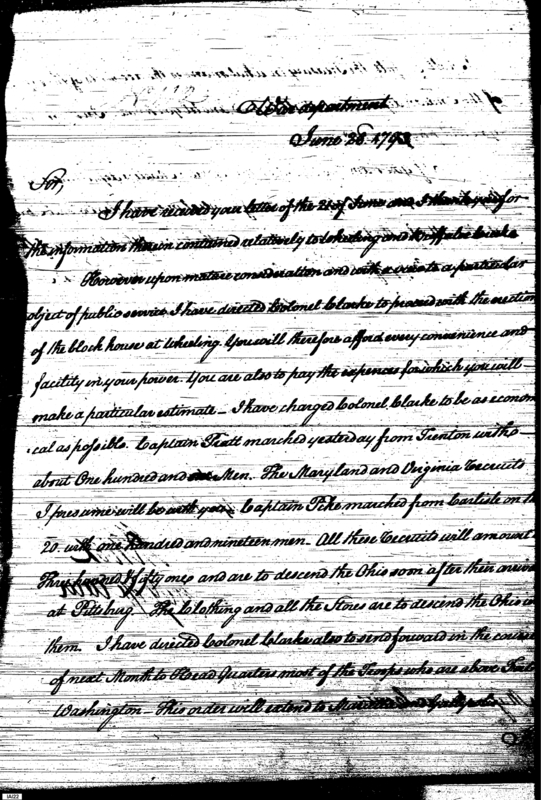 War department
June 28. 1793
Sir,
I have received your letter of the 21 of June and I thank you for
the information therein contained relatively to Wheeling and to
However upon mature consideration and with a view to a particular
object of public service I have directed Colonel Clarke to proceed with the erection
of the block house at Wheeling. You will therefore afford every convenience and
facility in your power. You are also to pay the expences for which you will
make a particular estimate – I have charged Colonel Clarke to be as econom
ical as possible. Captain Pratt marched yesterday from Trenton with
about One hundred and Men. The Maryland and Virginia Recruits
I presume will be with you. Captain Pike marched from Carlisle on the
20. with one hundred and nineteen men. All these Recruits will amount
Three hundred & fifty ones and are to descend the Ohio soon after their
at Pittsburg. The Clothing and all the Stores are to descend the Ohio
them. I have directed Colonel Clarke also to send forward in the course
of next Month to Head Quarters most of the Troops who are above Fort
Washington – This order will extend to
IAI22